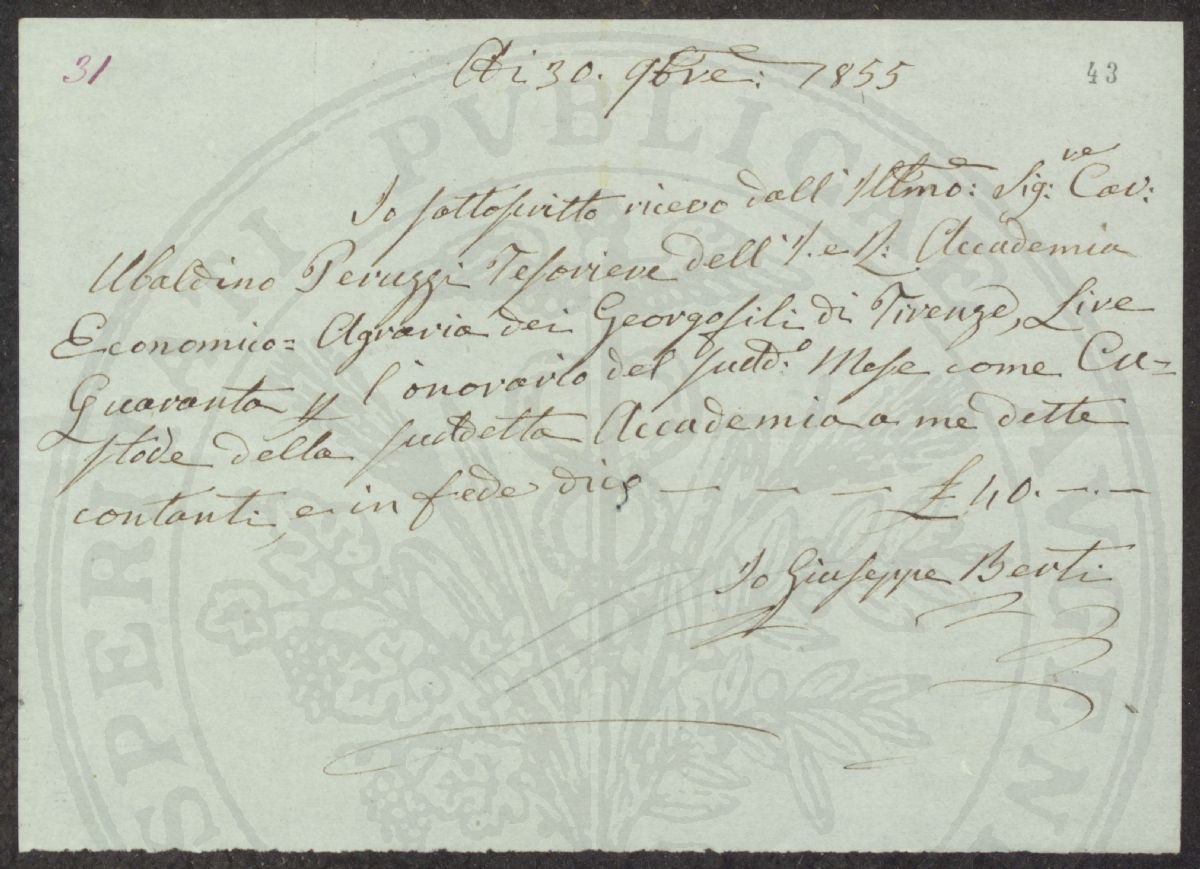 31
43
Adi 30. 9bre: 1855
Io sottoscritto ricevo dall'Illmo: Sig:re Cav:
Ubaldino Peruzzi Tesoriere dell'I. e R: Accademia
Economico= Agraria dei Georgofili di Firenze, Lire
Quaranta p l'onorario del sudd:o Mese come Cu=
stode della suddetta Accademia a me dette
contanti, e in fede dico — — — — £ 40. —.—
Io Giuseppe Berti
PROSPERITATI PVBLICAE AVGENDAE